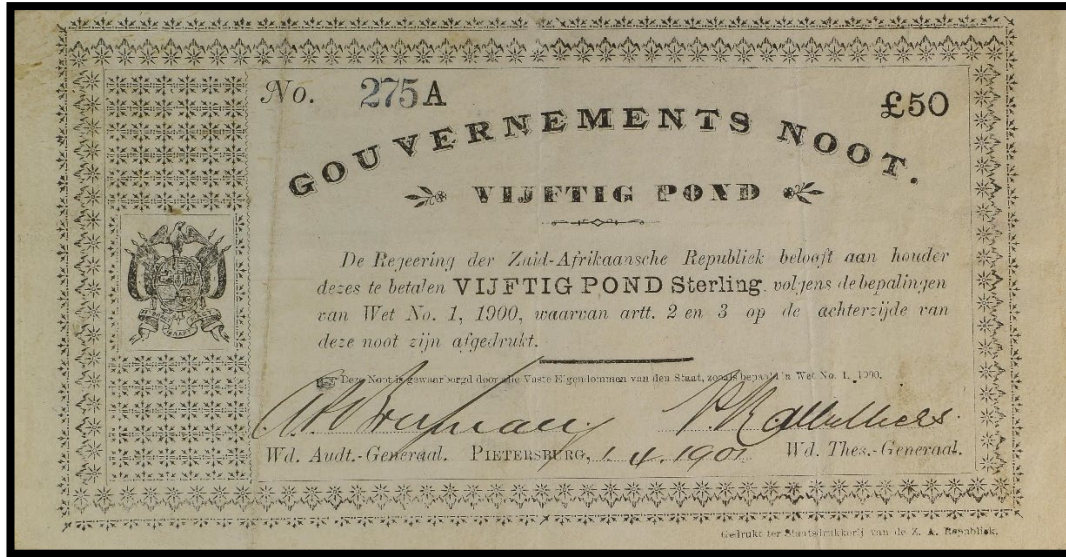 No. 275A
£50
GOUVERNEMENTS NOOT.
VIJFTIG POND
De Regeering der Zuid-Afrikaansche Republiek belooft aan houder
dezes te betalen VIJFTIG POND Sterling, volgens de bepalingen
van Wet No. 1, 1900, waarvan artt. 2 en 3 op de achterzijde van
deze noot zijn afgedrukt.
Deze Noot is gewaarborgd door alle Vaste Eigendommen van den Staat, zooals bepaald in Wet No. 1, 1900.
Wd. Audt.-Generaal. PIETERSBURG, 1.4.1901 Wd. Thes.-Generaal.
Gedrukt ter Staatsdrukkerij van de Z. A. Republiek.